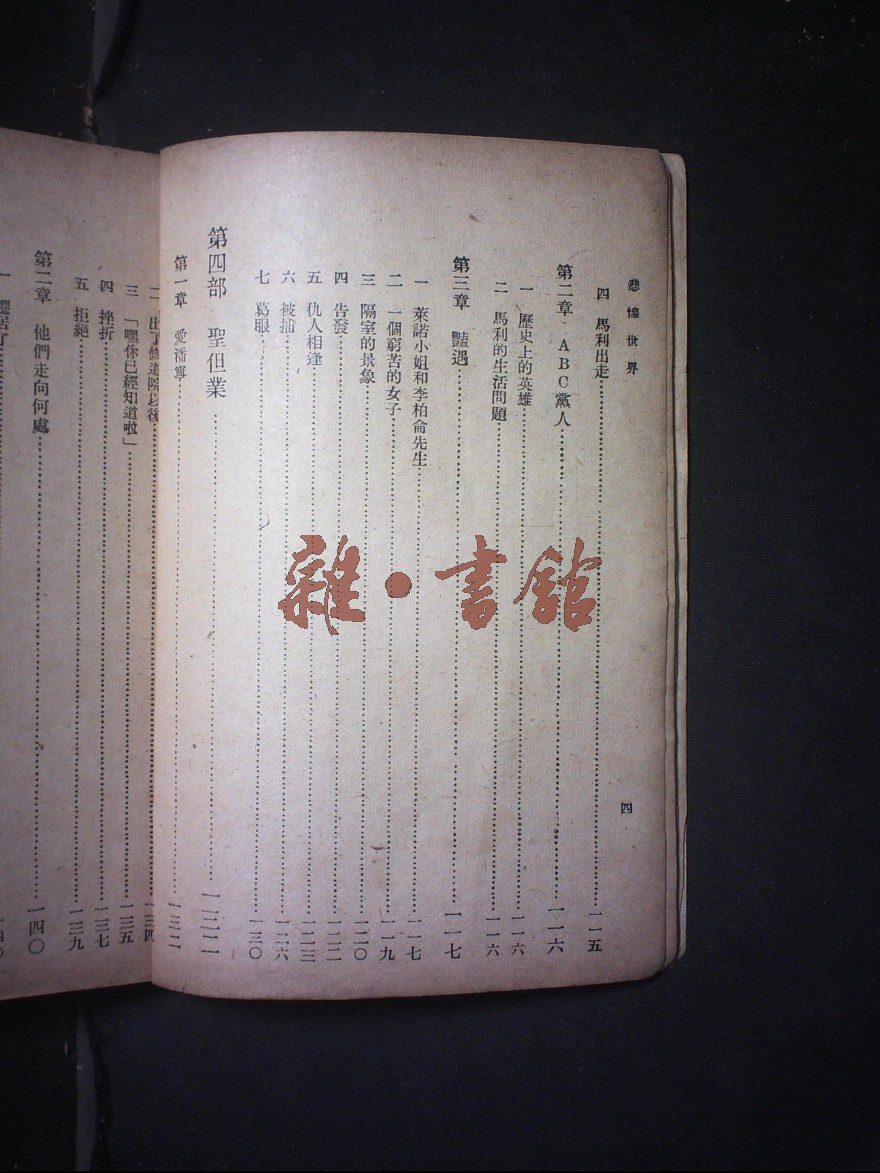 悲慘世界
四 馬利出走 一一五
第二章 ABC黨人 一一六
一 歷史上的英雄 一一六
二 馬利的生活問題 一一六
第三章 豔遇 一一七
一 萊諾小姐和李柏侖先生 一一七
二 一個窮苦的女子 一一九
三 隔室的景象 一二〇
四 告發 一二二
五 仇人相逢 一二三
六 被捕 一二六
七 葛服 一三〇
第四部 聖但業 一三二
第一章 愛潘寧 一三二
二 出了修道院以後 一三四
三 「嘿你已經知道啦」 一三五
四 挫折 一三七
五 拒絕 一三九
第二章 他們走向何處 一四〇
一 遷居了 一四〇
四
雜·書館